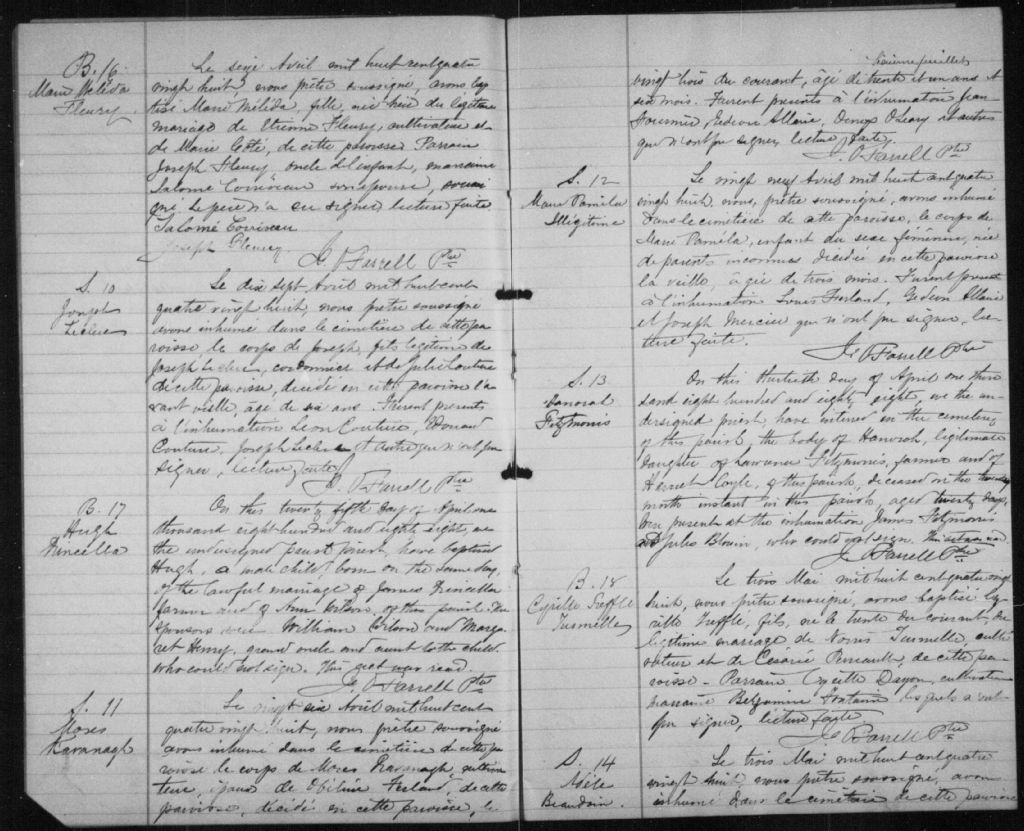 B. 16
Marie Mélida
Fleury
Le seize Avril mil huit cent quatre
vingt huit, nous prêtre soussigné, avons bap
tisé Marie Mélida, fille, née hier du légitime
mariage de Etienne Fleury, cultivateur et
de Marie Coté, de cette paroisse Parrain
Joseph Fleury, oncle de l'enfant, marraine
Salomé Corriveau son épouse, soussi
gné. Le père n'a su signer lecture faite
Salomé Coriveau
Joseph Fleury
J. O'Farrell Ptre
S. 10
Joseph
Leclerc
Le dix sept Avril mil huit cent
quatre vingt huit, nous prêtre soussigné
avons inhumé dans le cimetière de cette pa
roisse, le corps de Joseph, fils légitime de
Joseph Leclerc, cordonnier et de Julie Couture
de cette paroisse, décédé en cette paroisse l'a
vant veille, âgé de six ans. Furent présents
à l'inhumation Léon Couture, Honoré
Couture, Joseph Leclerc et autres qui n'ont pu
signer, lecture faite
J. O'Farrell Ptre
B. 17
Hugh
Princella
On this twenty fifth day of April one
thousand eight hundred and eighty eight, we
the undersigned parish priest, have baptised
Hugh, a male child born on the same day,
of the lawful marriage of James Princella
farmer and of Ann Wilson, of this parish. The
sponsors were William Wilson and Marga
ret Henry, grand uncle and aunt to the child
who could not sign. This act was read.
J. O'Farrell Ptre
S. 11
Moses
Kavanagh
Le vingt six Avril mil huit cent
quatre vingt huit, nous, prêtre soussigné
avons inhumé dans le cimetière de cette pa
roisse le corps de Moses Kavanagh, cultiva
teur, époux de Obéline Ferland, de cette
paroisse, décédé en cette paroisse, le
vingt trois du courant, âgé de trente et un ans et
six mois. Furent présents à l'inhumation Jean
Fournier, Gédéon Allaire, Denys O'Leary et autres
qui n'ont pu signer, lecture faite.
J. O'Farrell Ptre
S. 12
Marie Paméla
Illégitime
Le vingt neuf Avril mil huit cent quatre
vingt huit, nous, prêtre soussigné, avons inhumé
dans le cimetière de cette paroisse, le corps de
Marie Paméla, enfant du sexe féminin, née
de parents inconnus décédée en cette paroisse
la veille, âgée de trois mois. Furent présents
à l'inhumation Louis Ferland, Gédéon Allaire
et Joseph Mercier qui n'ont pu signer, lec
ture faite.
J. O'Farrell Ptre
S. 13
Hanorah
Fitzmoris
On this thirtieth day of April one thou
sand eight hundred and eighty eight, we the un
dersigned priest, have interred in the cemetery
of this parish, the body of Hanorah, legitimate
daughter of Lawrence Fitzmorris, farmer and of
Coyle, of this parish, deceased on the
month instant in this parish, aged twenty days,
present at the inhumation James Fitzmorris
and Jules Blouin, who could not sign. This act was read
J. O'Farrell Ptre
B. 18
Cyrille Truffle
Turmelle
Le trois Mai mil huit cent quatre vingt
huit, nous prêtre soussigné, avons baptisé Cy
rille Trufflé, fils, né le trente du courant, du
légitime mariage de Turmelle, culti
vateur et de Césarie Perreault, de cette pa
roisse. Parrain Cyrille Doyon, cultivateur
marraine Belzamire Fontaine lesquels n'ont
pu signer, lecture faite
J. O'Farrell Ptre
S. 14
Adèle
Beaudoin.
Le trois Mai mil huit cent quatre
vingt huit nous prêtre soussigné, avons
inhumé dans le cimetière de cette paroisse